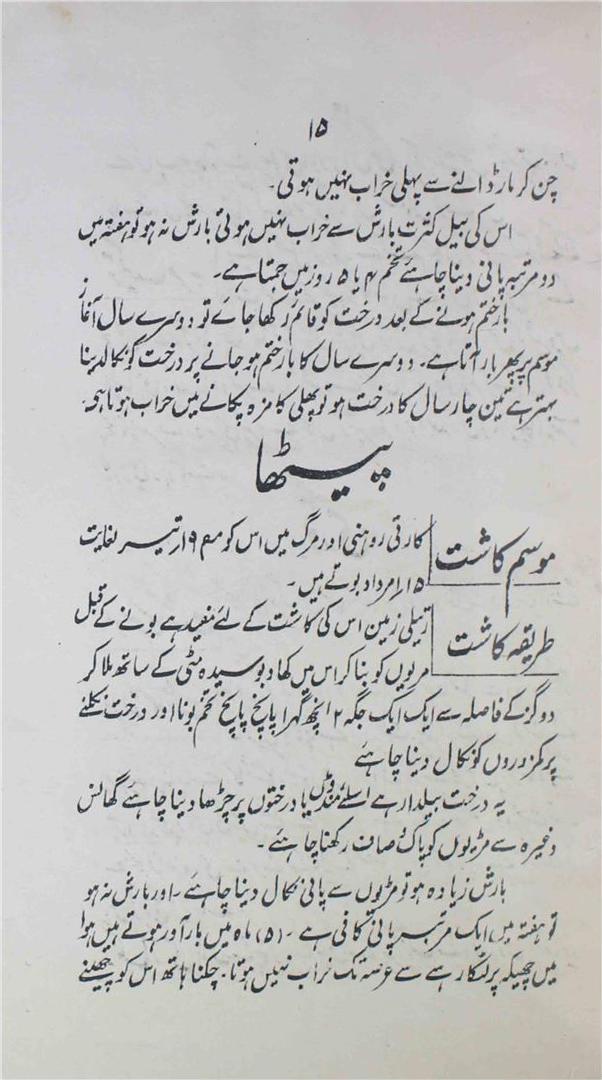 ۱۵
چن کر مار ڈالنے سے پھلی خراب نہیں ہوتی۔
اس کی بیل کثرت بارش سے خراب نہیں ہوتی بارش نہ ہو تو ہفتہ میں
دو مرتبہ پانی دینا چاہئے تخم ۴ یا ۵ روز میں جمتا ہے۔
بار ختم ہونے کے بعد درخت کو قائم رکھا جائے تو دوسرے سال آغاز
موسم پر پھر بار آتا ہے۔ دوسرے سال کا بار ختم ہو جانے پر درخت کو نکالدینا
بہتر ہے تین چار سال کا درخت ہو تو پھلی کا مزہ پکانے میں خراب ہوتا ہی۔
پیٹھا
موسم کاشت
کارتی روہنی اور مرگ میں اس کو م ۱۹ تیر لغایت
۱۵ امرداد بوتے ہیں۔
طریقہ کاشت
رتیلی زمین اس کی کاشت کے لئے مفید ہے بونے کے قبل
مریوں کو بنا کر اس میں کھاد بوسیدہ مٹی کے ساتھ ملا کر
دو گز کے فاصلہ سے ایک ایک جگہ ۲ انچھ گہرا پانچ پانچ تخم بونا اور درخت نکلنے
پر کمزوروں کو نکال دینا چاہئے
یہ درخت بیلدار ہے اسلئے منڈوں یا درختوں پر چڑھا دینا چاہئے گھانس
وغیرہ سے مڑیوں کو پاک صاف رکھنا چاہئے۔
بارش زیادہ ہو تو مڑیوں سے پانی نکال دینا چاہئے۔ اور بارش نہ ہو
تو ہفتہ میں ایک مرتبہ پانی کافی ہے۔ (۵) ماہ میں بار آور ہوتے ہیں ہوا
میں چھیکہ پر لٹکا رہے سے عرصہ تک خراب نہیں ہوتا۔ چکنا ہاتھ اس کو